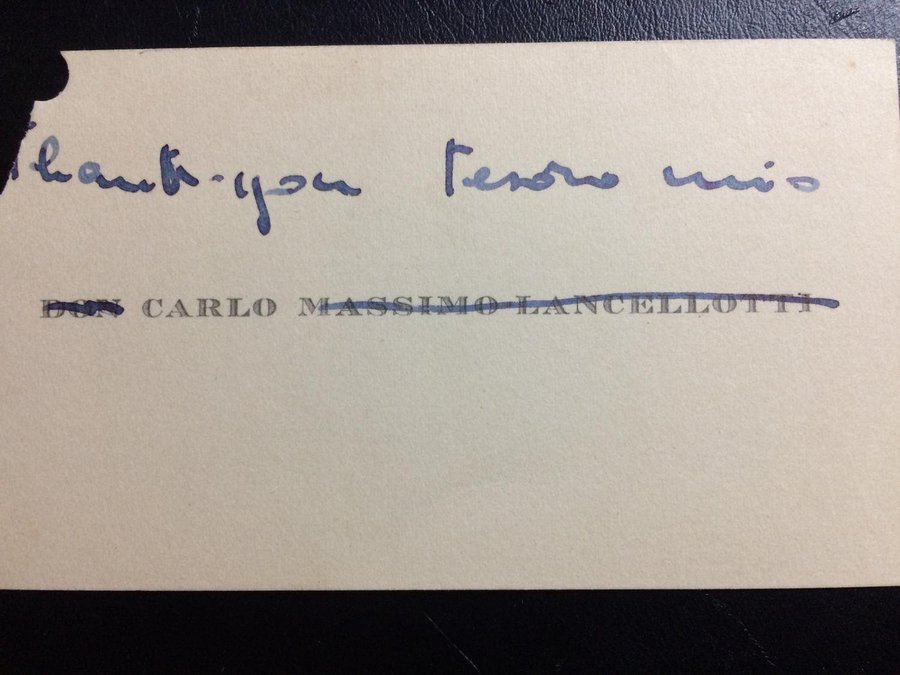 Thank-you tesoro mio
DON CARLO MASSIMO-LANCELLOTTI